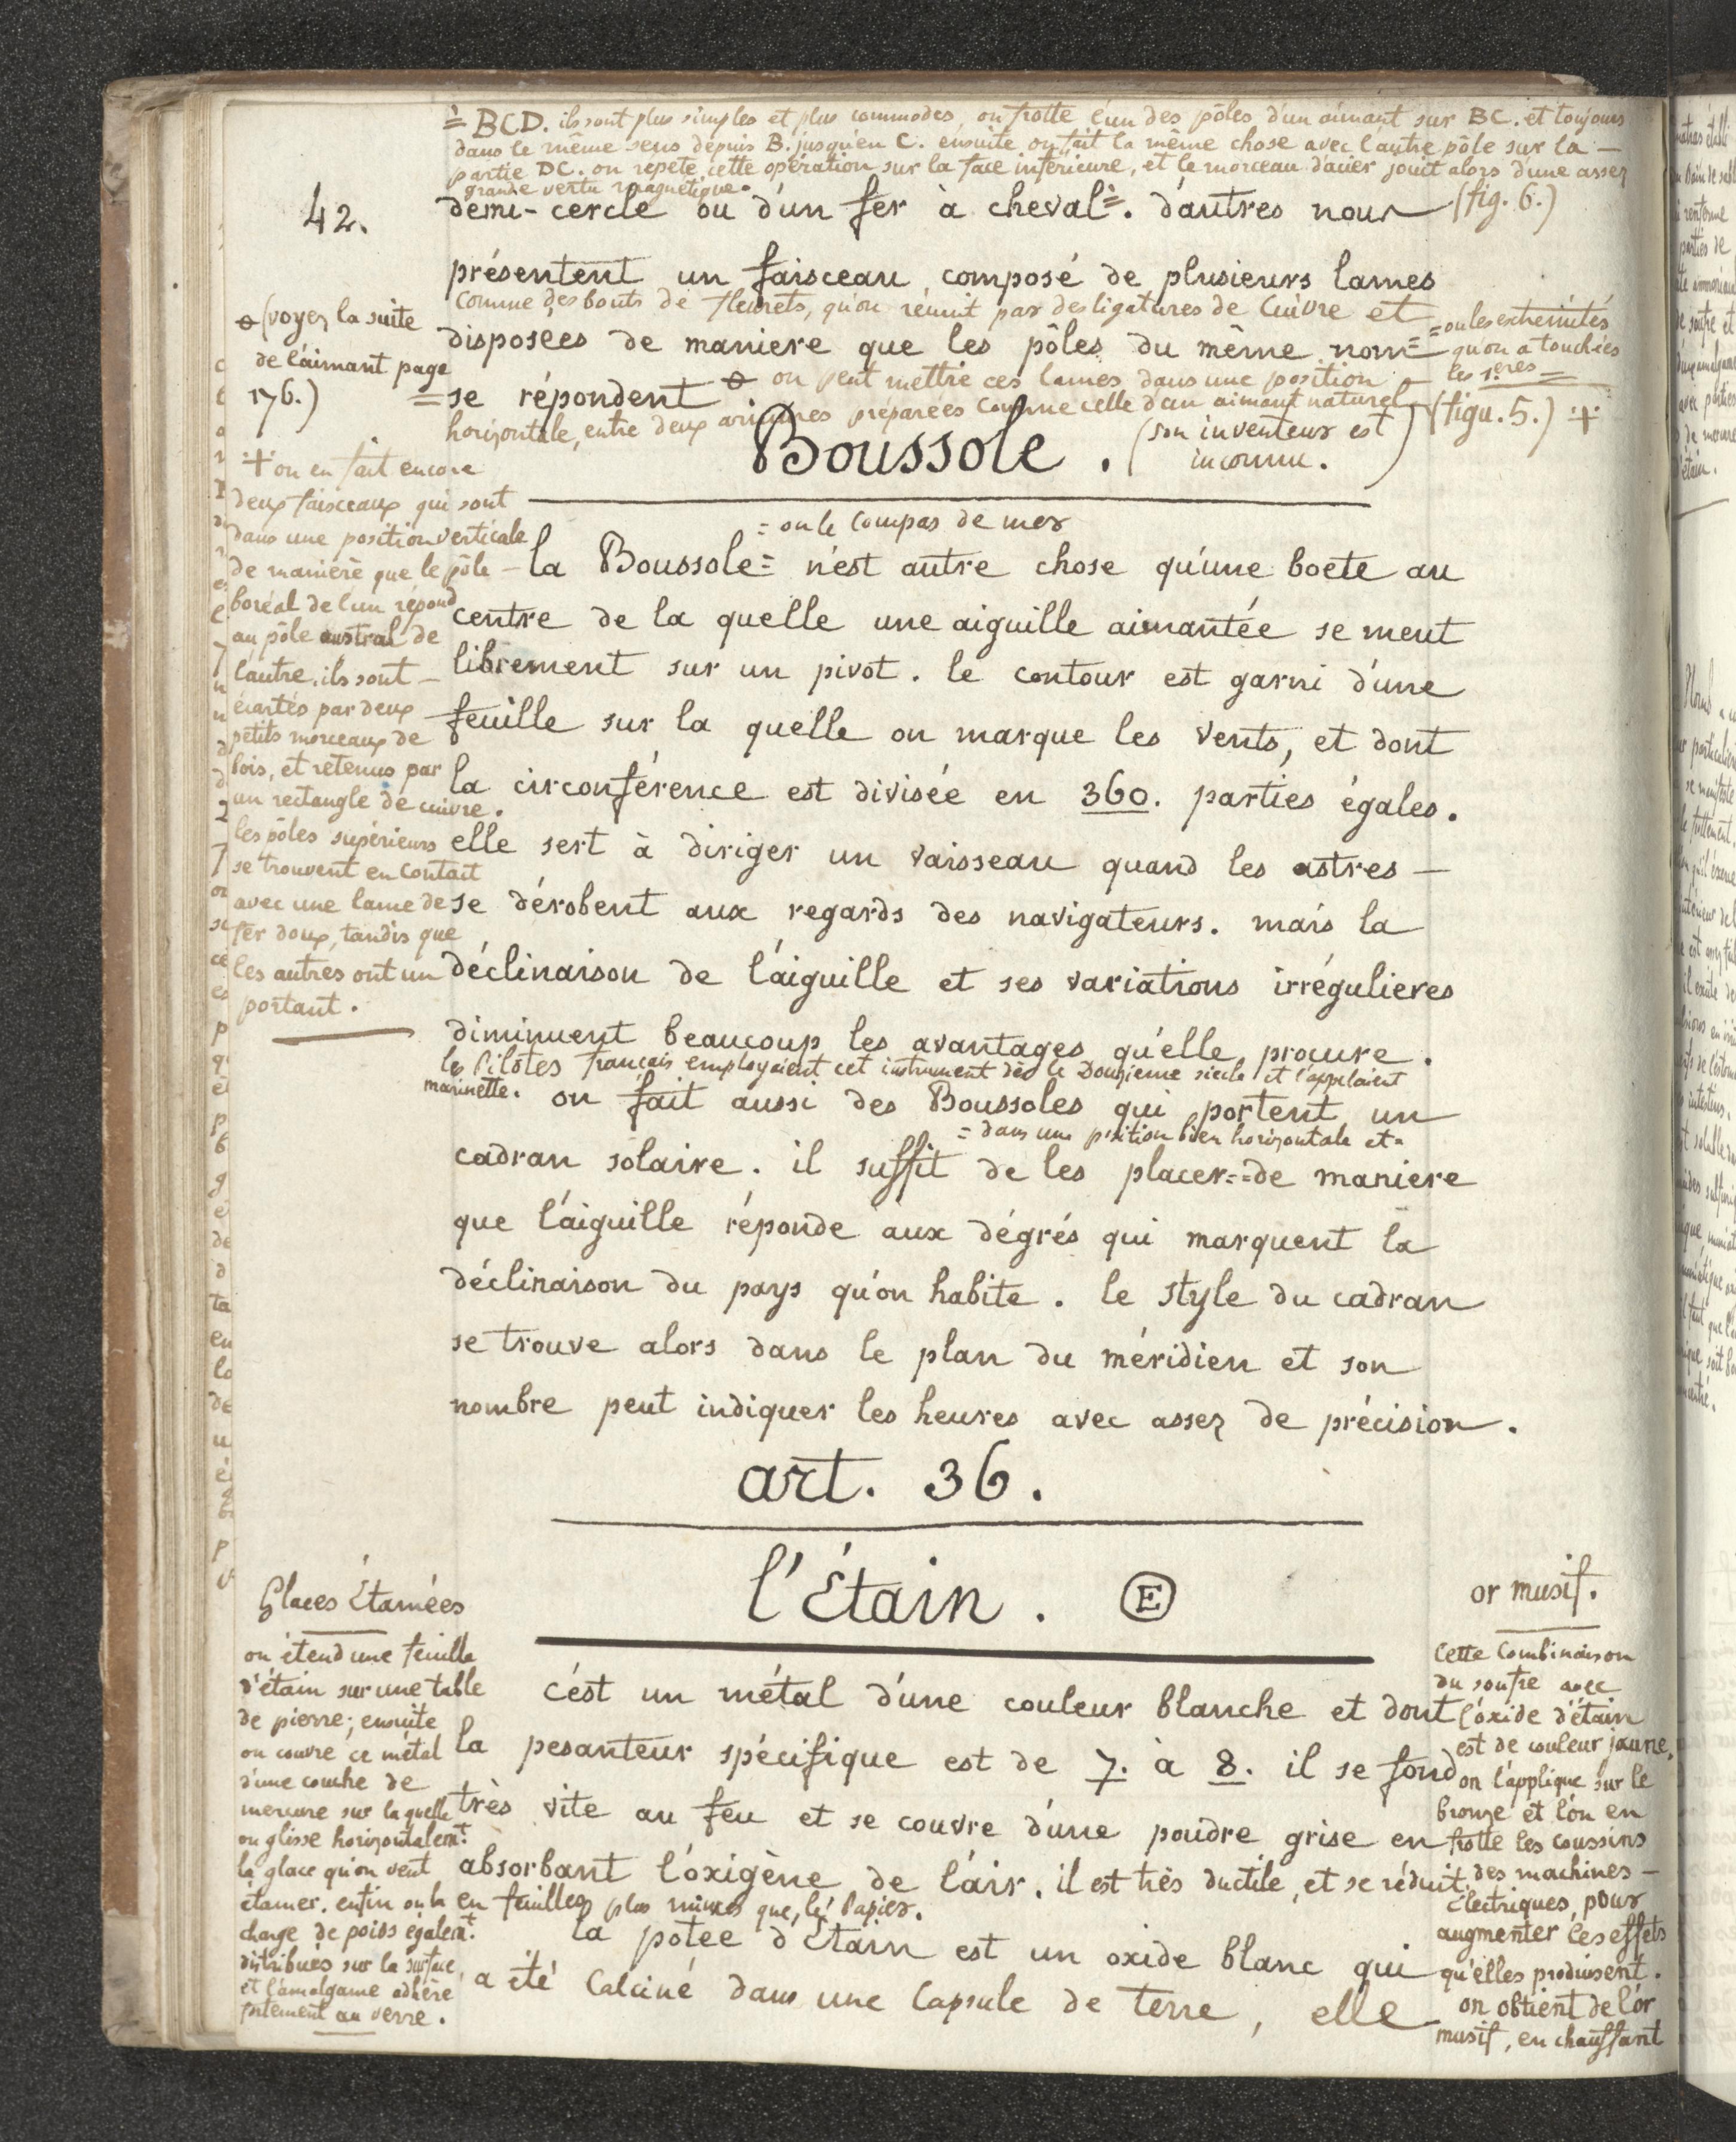 = BCD. ils sont plus simples et plus commodes, on frotte l'un des pôles d'un aimant sur BC. et toujours
dans le même sens depuis B. jusqu'en C. ensuite on fait la même chose avec l'autre pôle sur la —
partie DC. on repete cette opération sur la face inférieure, et le morceau d'acier jouit alors d'une assez
grande vertu magnétique.
42.
demi-cercle ou d'un fer à cheval =. d'autres nous (fig. 6.)
présentent un faisceau composé de plusieurs lames
comme des bouts de fleurets, qu'on réunit par des ligatures de Cuivre et
disposées de maniere que les pôles du même nom =
= ou les extrémités
qu'on a touchées
les 1.eres =
se répondent ⊖ on peut mettre ces lames dans une position
horizontale, entre deux armures préparées comme celle d'un aimant naturel (figu. 5.) ⁜
⊖ (voyez la suite
de l'aimant page
176.)
Boussole. (son inventeur est
inconnu.)
⁜ on en fait encore
deux faisceaux qui sont
dans une position verticale
de manière que le pôle —
boréal de l'un répond
au pôle austral de
l'autre. ils sont —
écartés par deux
petits morceaux de
bois, et retenus par
un rectangle de cuivre.
les pôles supérieurs
se trouvent en contact
avec une lame de
fer doux, tandis que
les autres ont un
portant.
= ou le Compas de mer
la Boussole = n'est autre chose qu'une boete au
centre de la quelle une aiguille aimantée se meut
librement sur un pivot. le contour est garni d'une
feuille sur la quelle on marque les vents, et dont
la circonférence est divisée en 360. parties égales.
elle sert à diriger un vaisseau quand les astres —
se dérobent aux regards des navigateurs. mais la
déclinaison de l'aiguille et ses variations irrégulieres
diminuent beaucoup les avantages qu'elle procure.
les Pilotes français employaient cet instrument dès le Douzieme siecle et l'appelaient
marinette. on fait aussi des Boussoles qui portent un
= dans une position bien horizontale et =
cadran solaire. il suffit de les placer = = de maniere
que l'aiguille réponde aux dégrés qui marquent la
déclinaison du pays qu'on habite. le style du cadran
se trouve alors dans le plan du méridien et son
nombre peut indiquer les heures avec assez de précision.
art. 36.
l'Étain. Ⓔ
Glaces Étamées
on étend une feuille
d'étain sur une table
de pierre; ensuite
on couvre ce métal
d'une couche de
mercure sur laquelle
on glisse horizontalemt.
la glace qu'on veut
étamer. enfin on la
charge de poids egalemt.
distribués sur la surface,
et l'amalgame adhère
fortement au verre.
c'est un métal d'une couleur blanche et dont
la pesanteur spécifique est de 7. à 8. il se fond
très vite au feu et se couvre d'une poudre grise en
absorbant l'oxigène de l'air. il est très ductile, et se réduit
en feuilles plus minces que le Papier.
la potée d'Étain est un oxide blanc qui
a été Calciné dans une Capsule de terre, elle
or musif.
Cette Combinaison
du soufre avec
l'oxide d'étain
est de couleur jaune,
on l'applique sur le
bronze et l'on en
frotte les coussins
des machines —
Électriques, pour
augmenter les effets
qu'elles produisent.
on obtient de l'or
musif, en chauffant